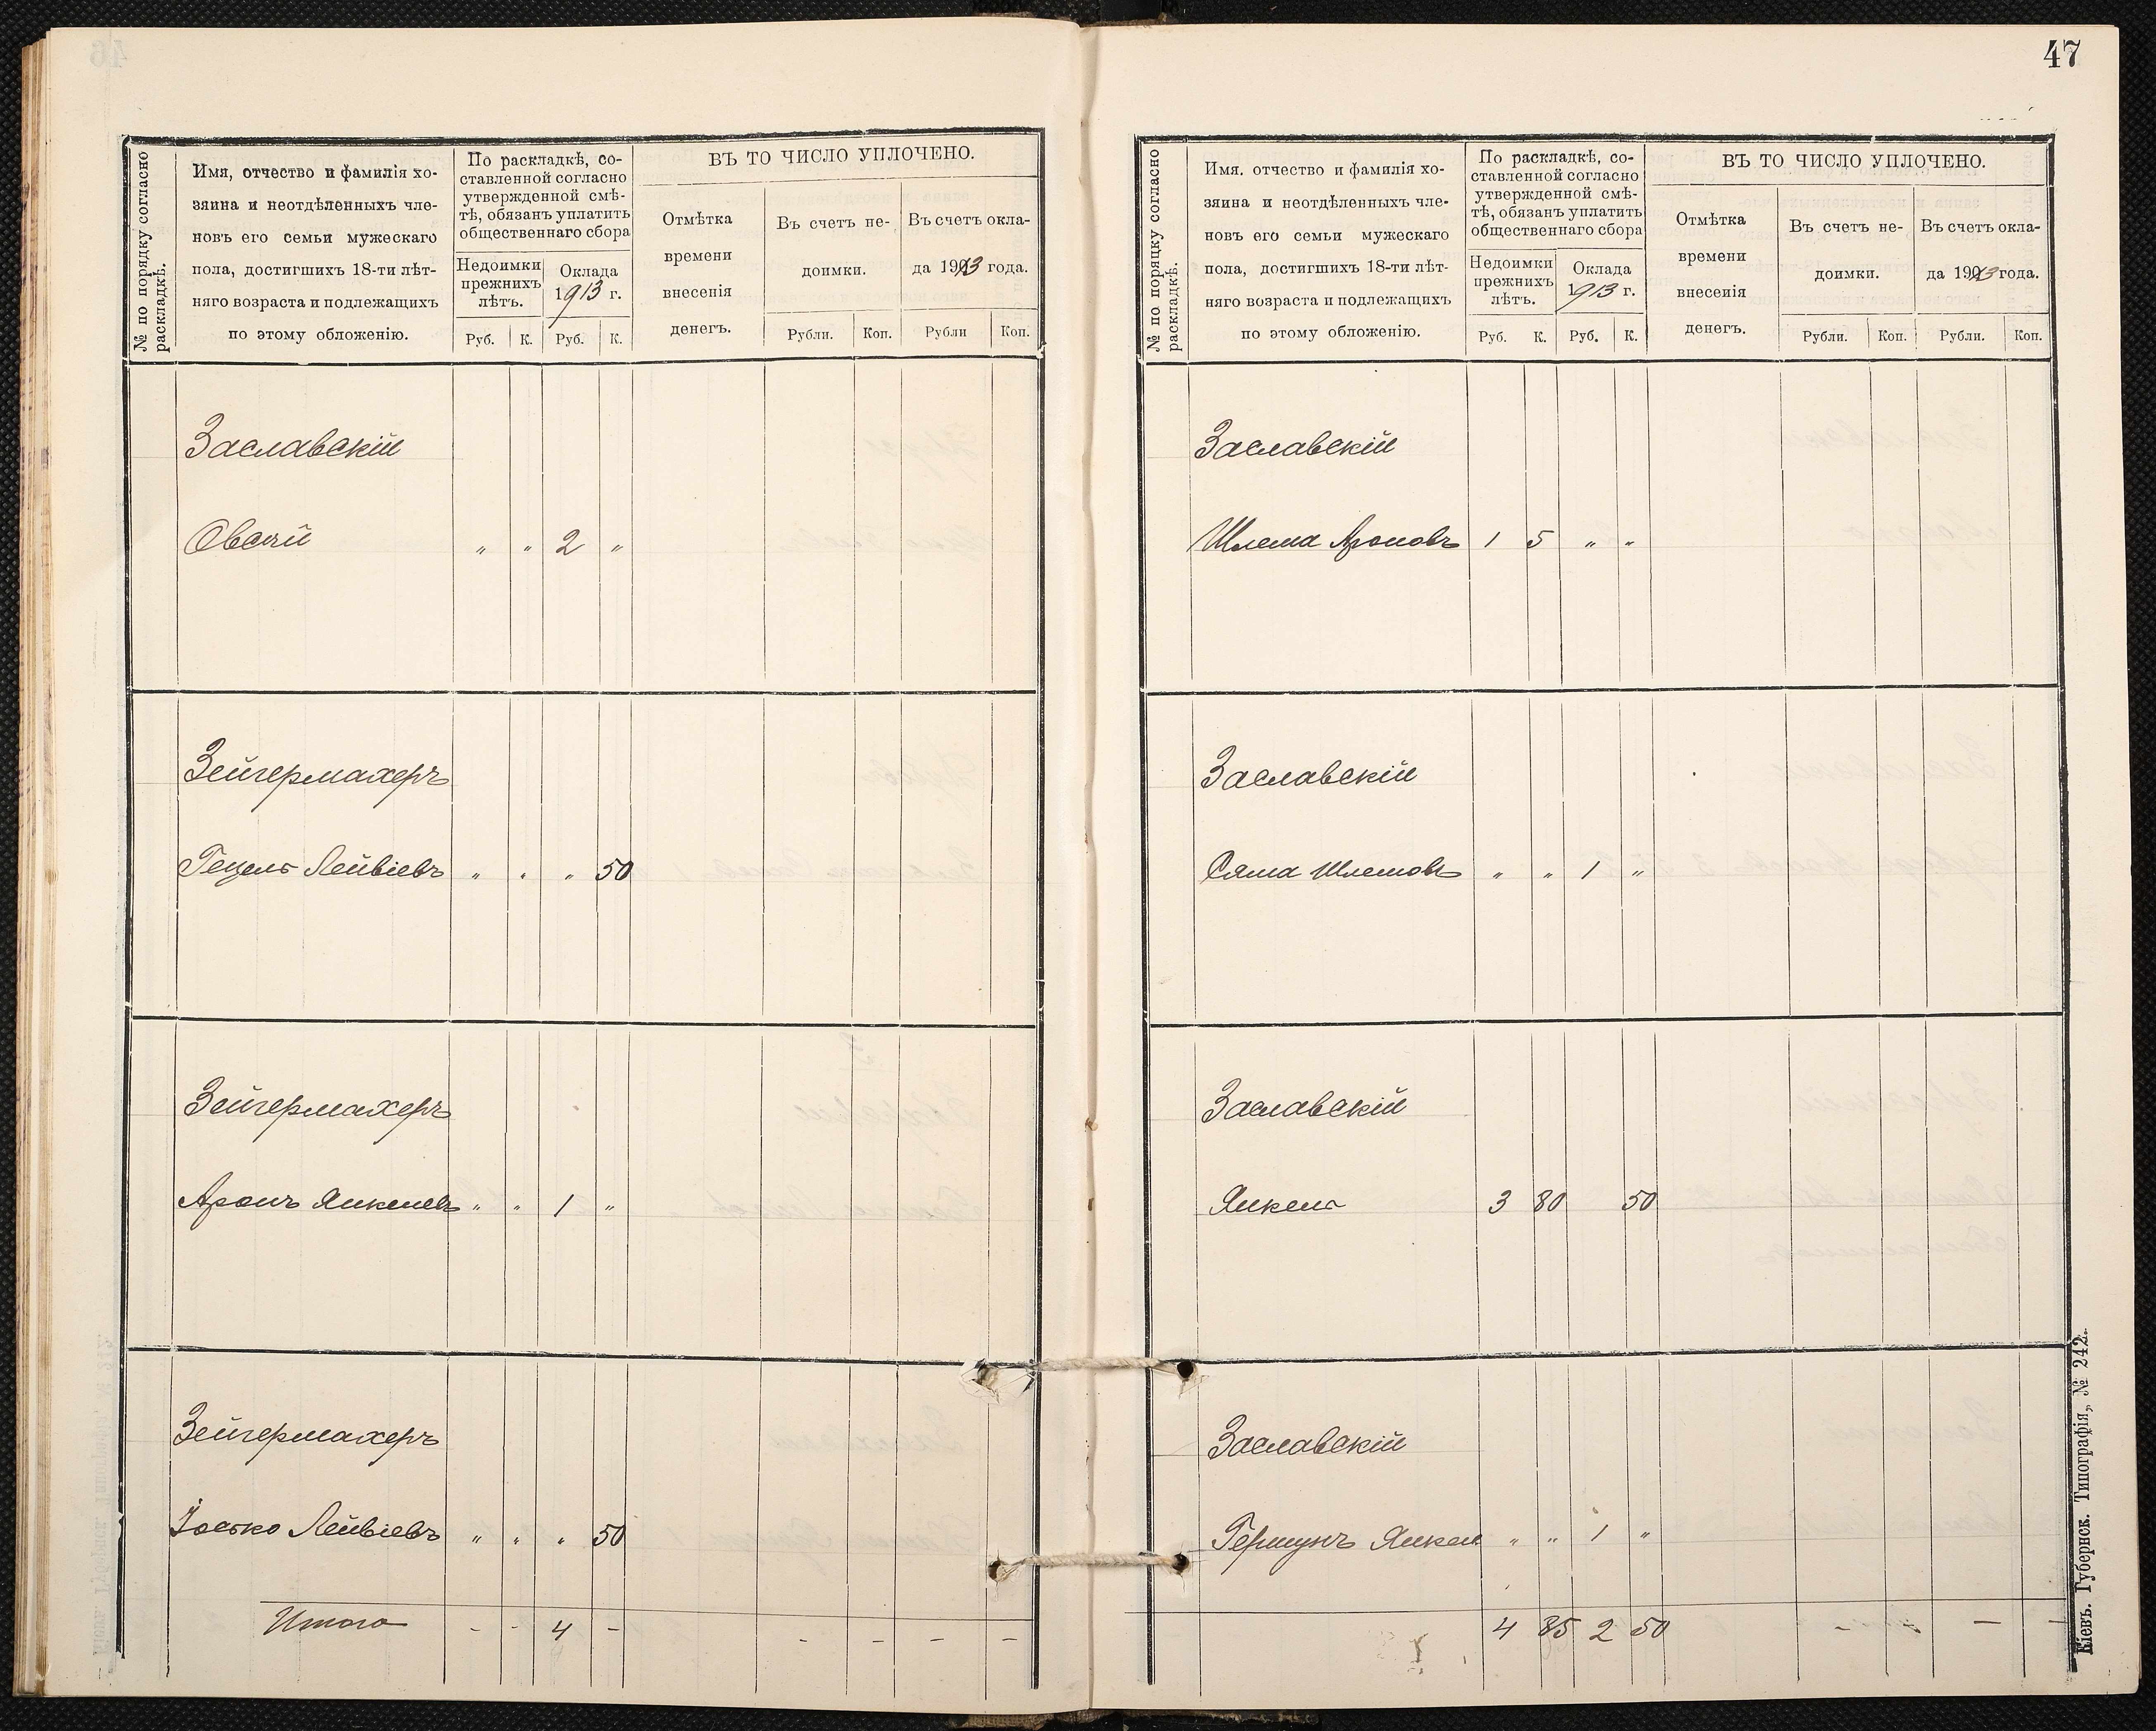 47
№ по порядку согласно
раскладкѣ.
Имя, отчество и фамилія хо-
зяина и неотдѣленныхъ чле-
новъ его семьи мужескаго
пола, достигшихъ 18-ти лѣт-
няго возраста и подлежащихъ
по этому обложенію.
По раскладкѣ, со-
ставленной согласно
утвержденной смѣ-
тѣ, обязанъ уплатить
общественнаго сбора
Недоимки
прежнихъ
лѣтъ.
Оклада
1913 г.
Руб. К. Руб. К.
ВЪ ТО ЧИСЛО УПЛОЧЕНО.
Отмѣтка
времени
внесенія
денегъ.
Въ счетъ не-
доимки.
Рубли. Коп.
Въ счетъ окла-
да 1913 года.
Рубли Коп.
Заславскій
Овсій " " 2 "
Зейгермахеръ
Гецель Лейвіевъ " " " 50
Зейгермахеръ
Аронъ Янкелевъ " " 1 "
Зейгермахеръ
Іосько Лейвіевъ " " " 50
Итого - - 4 - - - - -
№ по поряцку согласно
раскладкѣ.
Имя. отчество и фамилія хо-
зяина и неотдѣленныхъ чле-
новъ его семьи мужескаго
пола, достигшихъ 18-ти лѣт-
няго возраста и подлежащихъ
по этому обложенію.
По раскладкѣ, со-
ставленной согласно
утвержденной смѣ-
тѣ, обязанъ уплатить
общественнаго сбора
Недоимки
прежнихъ
лѣтъ.
Оклада
1913 г.
Руб. К. Руб. К.
ВЪ ТО ЧИСЛО УПЛОЧЕНО.
Отмѣтка
времени
внесенія
денегъ.
Въ счетъ не-
доимки.
Рубли. Коп.
Въ счетъ окла-
да 1913 года.
Рубли. Коп.
Заславскій
Шлема Ароновъ 1 5 " "
Заславскій
Сяма Шлемовъ " " 1 "
Заславскій
Янкель 3 80 50
Заславскій
Гершунъ Янкел " " 1 "
4 85 2 50 - - - -
Кіевъ. Губернск. Типографія, № 242.